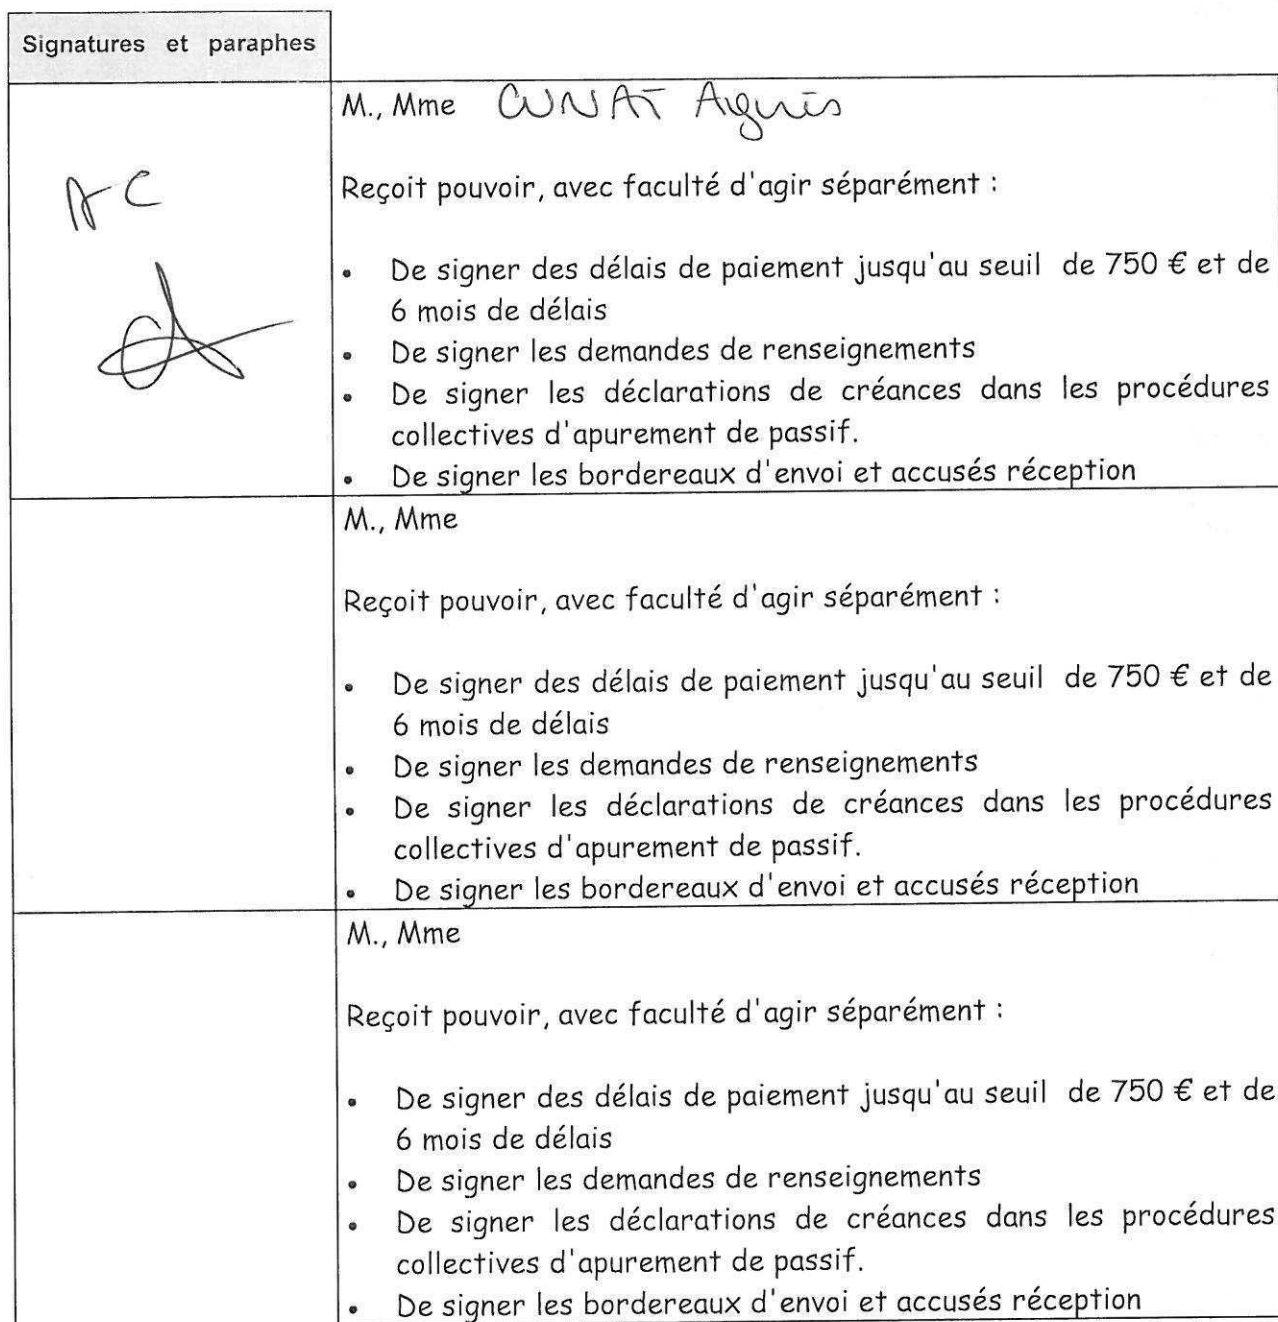 Signatures et paraphes
M., Mme CUNAT Agnès
AC
Reçoit pouvoir, avec faculté d'agir séparément :
• De signer des délais de paiement jusqu'au seuil de 750 € et de
6 mois de délais
• De signer les demandes de renseignements
• De signer les déclarations de créances dans les procédures
collectives d'apurement de passif.
• De signer les bordereaux d'envoi et accusés réception
M., Mme
Reçoit pouvoir, avec faculté d'agir séparément :
• De signer des délais de paiement jusqu'au seuil de 750 € et de
6 mois de délais
• De signer les demandes de renseignements
• De signer les déclarations de créances dans les procédures
collectives d'apurement de passif.
• De signer les bordereaux d'envoi et accusés réception
M., Mme
Reçoit pouvoir, avec faculté d'agir séparément :
• De signer des délais de paiement jusqu'au seuil de 750 € et de
6 mois de délais
• De signer les demandes de renseignements
• De signer les déclarations de créances dans les procédures
collectives d'apurement de passif.
• De signer les bordereaux d'envoi et accusés réception